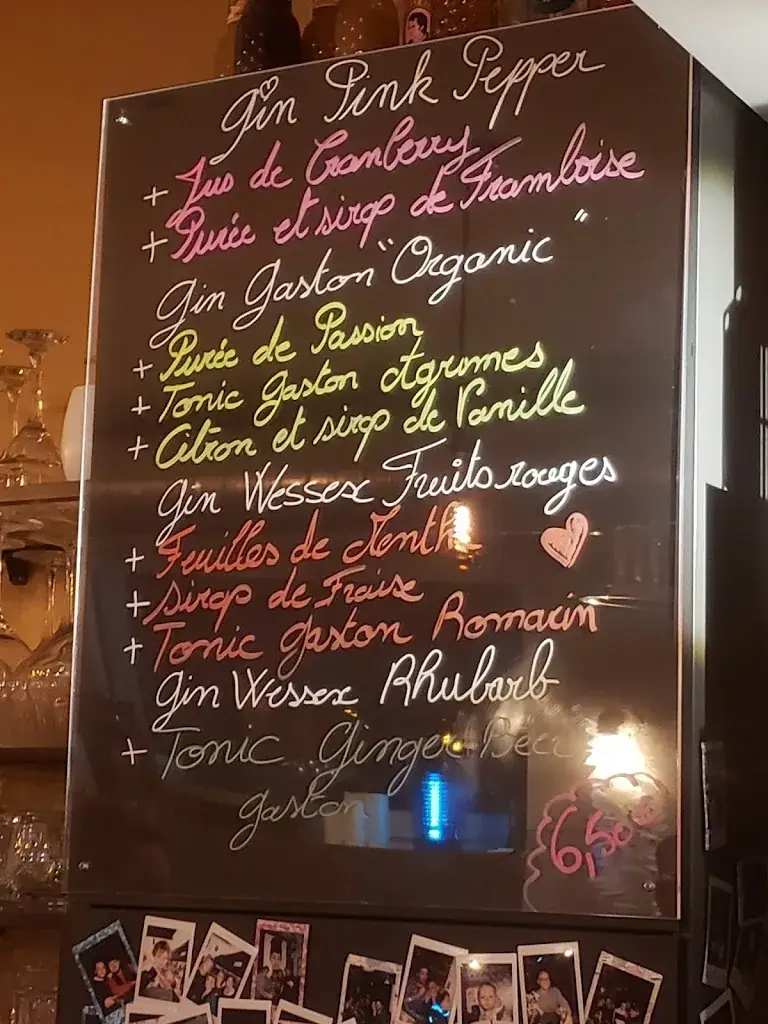 Gin Pink Pepper
+ Jus de Cranberry
+ Purée et sirop de Framboise
Gin Gaston "Organic"
+ Purée de Passion
+ Tonic Gaston Agrumes
+ Citron et sirop de Vanille
Gin Wessex Fruits rouges
+ Feuilles de Menthe
+ Sirop de Fraise
+ Tonic Gaston Romarin
Gin Wessex Rhubarb
+ Tonic Ginger Beer
Gaston
6,50€